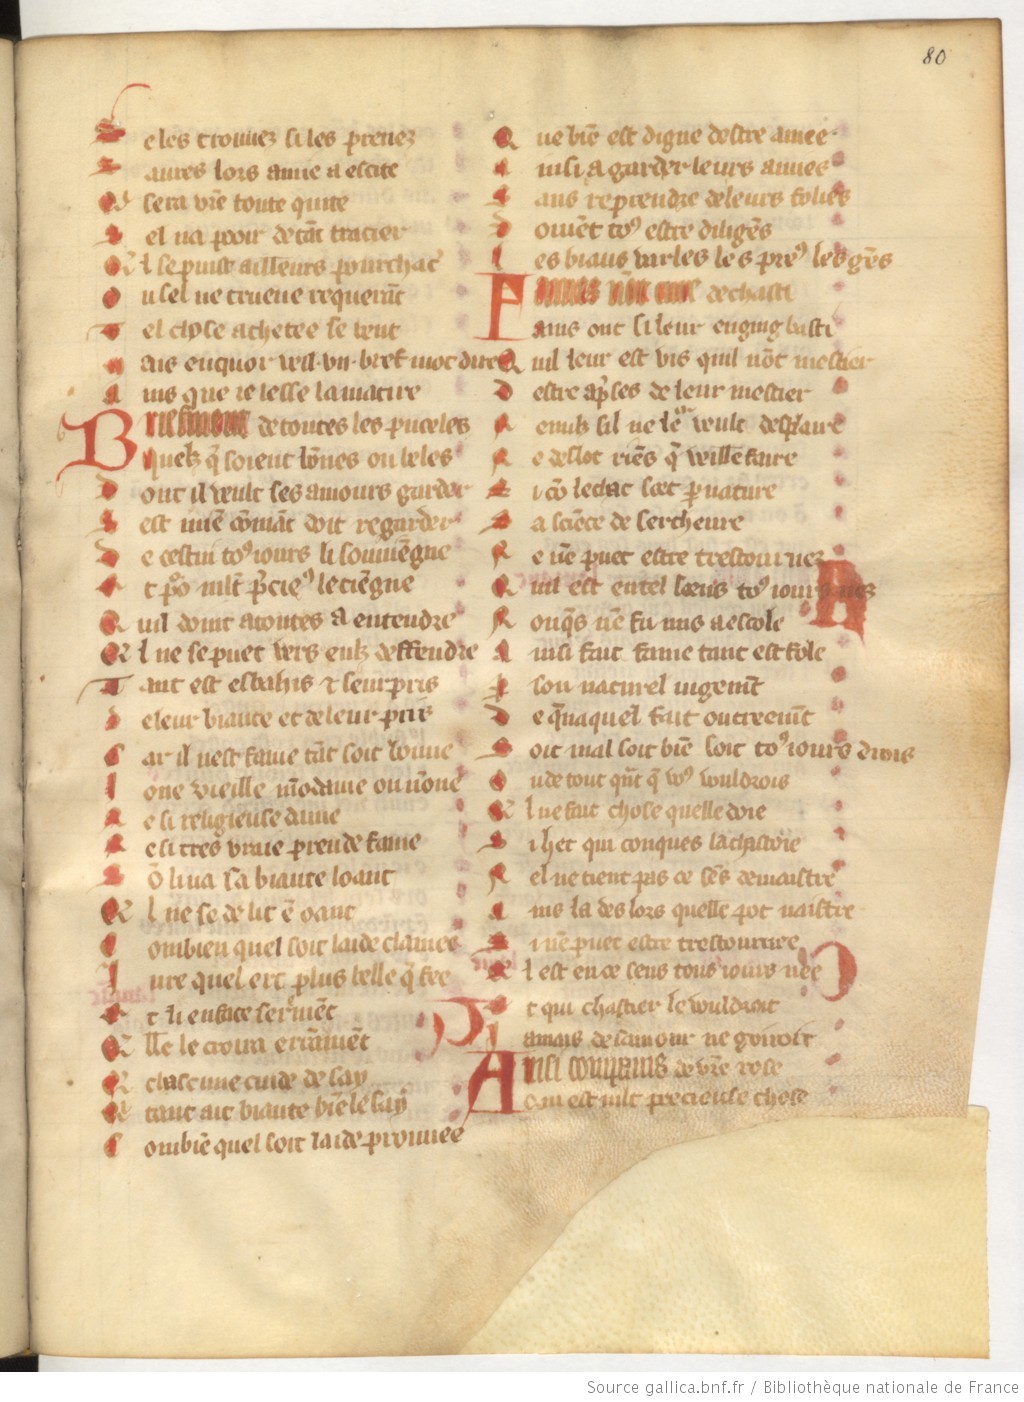 80
S e les trouuez si les prenez
S aures lors amie a eslite
Q sera vr̄e toute quite
S el na pooir de tāt tracier
Q il se puist ailleurs pourchac̄
O u sel ne trueue requerāt
T el chose achetee se vent
M ais enquor veil .vn. bref mot dire
A ins que ie lesse la matire
Briefment de toutes les puceles
quelz q̄ soient bōnes ou beles
D ont il veult ses amours garder
est mien cōmāt doit regarder
D e cestui toꝰiours li souuiēgne
E t pͦo mlt p̄cieꝰ le tiēgne
Q uil doint a toutes a entendre
Q l ne se puet vers eulz deffendre
T ant est esbahis ⁊ seurpris
D e leur biaute et de leur pris
C ar il nest fame tāt soit bonne
I one vieille mōdaine ou nōne
N e si religieuse dame
N e si tres vraie prende fame
S ō li va sa biaute loant
Q l ne se delit ē oant
C ombien quel soit laide clamee
I ure quel ert plus belle q̄ fee
E t li en face seremēt
E lle le croira erraumēt
Q chascune cuide de say
Q tant ait biaute biē le say
C ombiē quel soit laide prouuee
Q ue biē est digne destre amee
A insi a garder leurs amies
S ans reprendre de leurs folies
D oiuēt toꝰ estre diligēs
L es biaus varles les preꝰ les gēs
Fames nōt cure de chasti
Ains ont si leur enging basti
Q uil leur est vis quil nōt mestier
D estre apͬses de leur mestier
N e nulz sil ne leͬ veult desplaire
N e deslot riēs q̄ veillēt faire
S i cō le chat scet p nature
L a sciēce de sercheure
N e nē puet estre trestournez
Q uil est en tel seus toꝰ iours nez
N onqs nē fu mis a escole
A insi fait fame tant est fole
P son naturel iugemēt
D e q̄naquel fait outreemēt
S oit mal soit biē soit toꝰ iours drois
O u de tout qn̄t q̄ voꝰ vouldrois
Q l ne fait chose quelle doie
S i het qui conques la chastoie
N el ne tient pas ce sēs de maistre
A ins la des lors quelle pot naistre
S i nē puet estre trestournee
Q l est en ce sens tous iours nee
E t qui chastier le vouldroit
Iamais de samour ne goiroit
Ansi compains de vr̄e rose
Q om est mlt precieuse chose
Source gallica.bnf.fr / Bibliothèque nationale de France